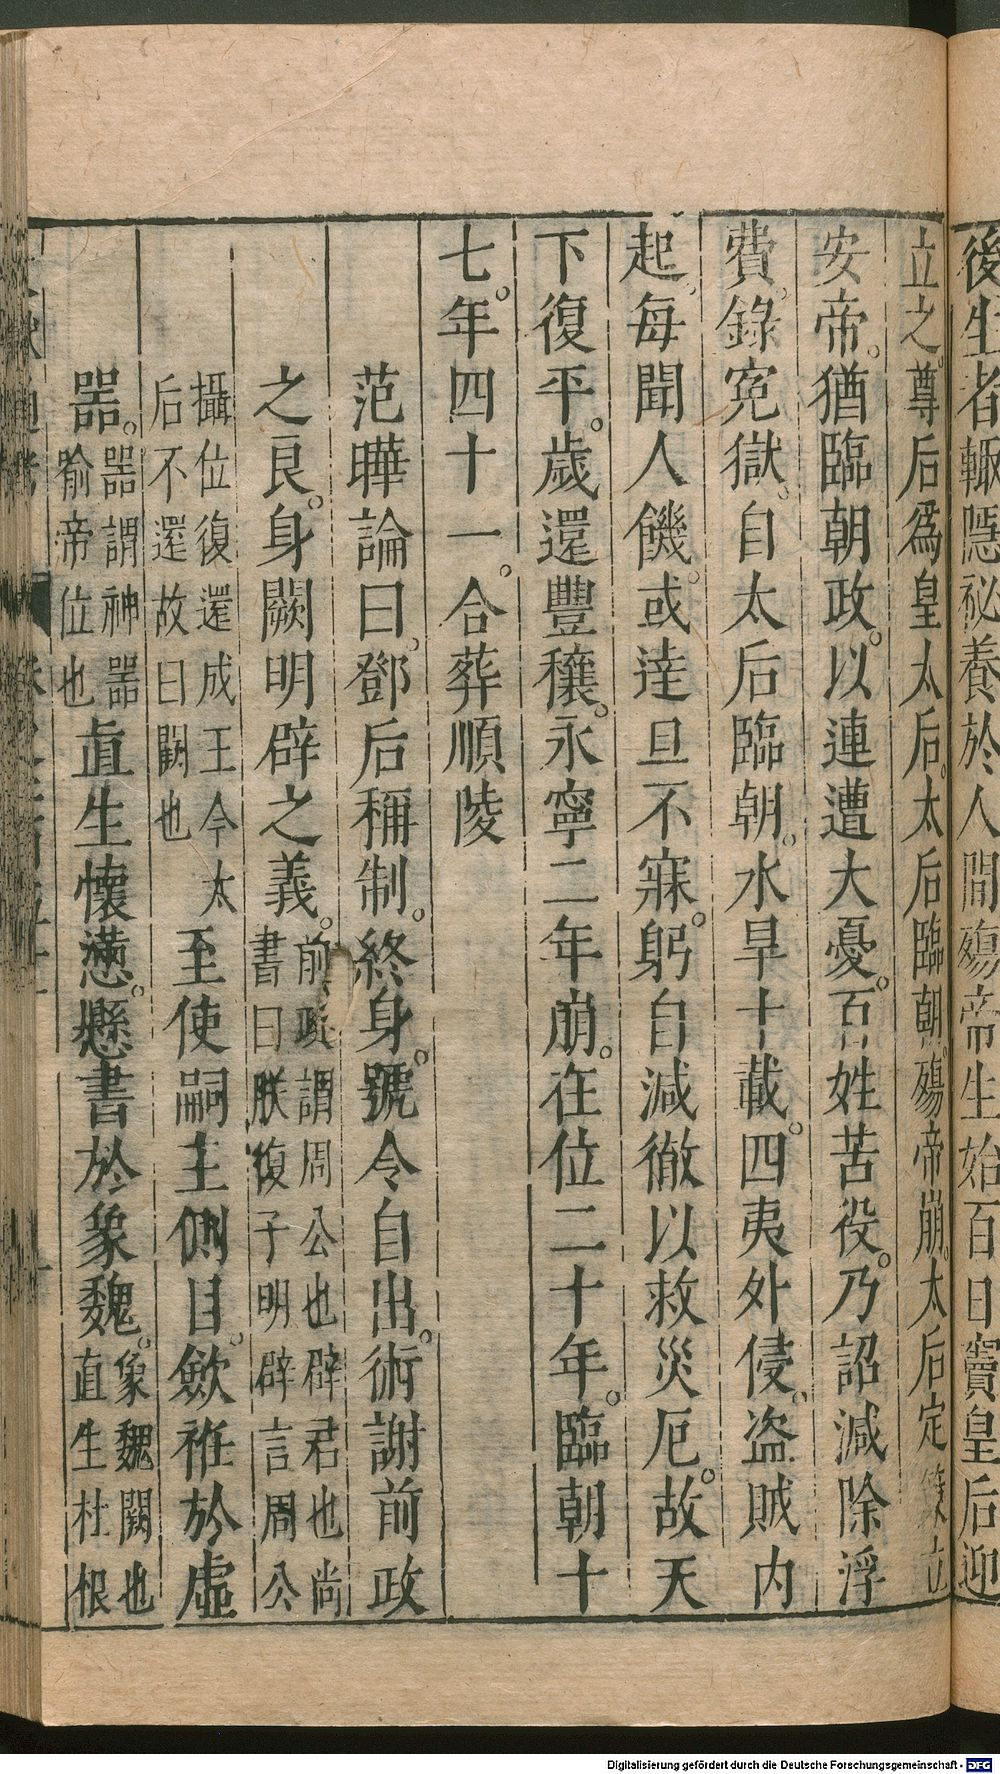 後生者輙隱祕養於人間殤帝生始百日竇皇后迎
立之。尊后爲皇太后。太后臨朝。殤帝崩。太后定策立
安帝。猶臨朝政。以連遭大憂。百姓苦役。乃詔減除浮
費。錄冤獄。自太后臨朝。水旱十載。四夷外侵。盗賊内
起。每聞人饑。或逹旦不寐。躬自減徹以救災厄。故天
下復平。歲還豐穰。永寧二年崩。在位二十年。臨朝十
七年。四十一。合葬順陵
范曄論曰。鄧后稱制。終身。號令自出。術謝前政
之良。身闕明辟之義。前政謂周公也辟君也尚
書曰朕復子明辟言周公
攝位復還成王今太
后不還故曰闕也
至使嗣主側目。歛袵於虛
器。器謂神器
喻帝位也
直生懷懣。懸書於象魏。象魏闕也
直生杜根
Digitalisierung gefördert durch die Deutsche Forschungsgemeinschaft - DFG